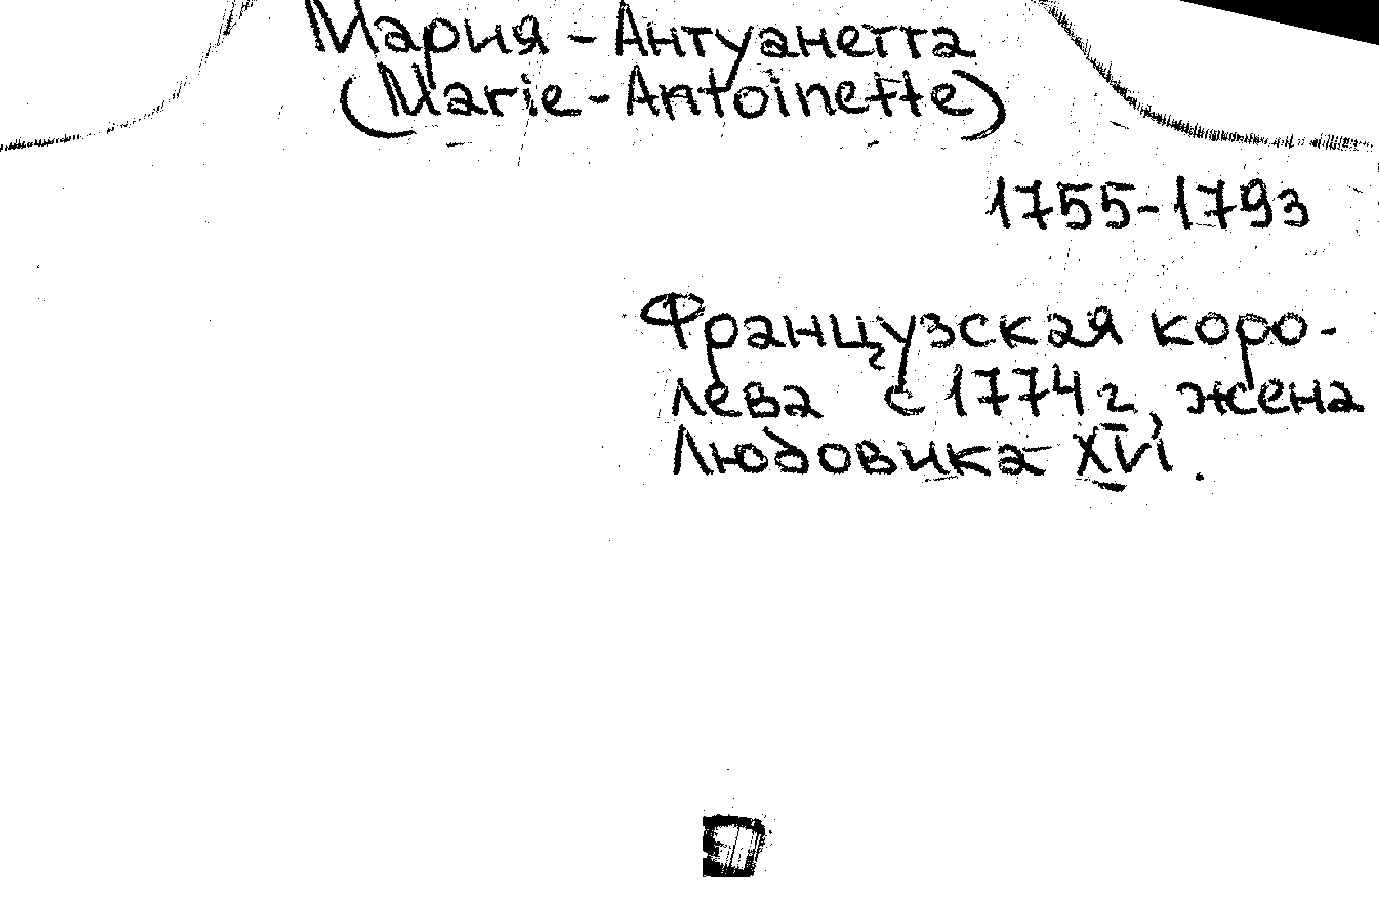 Мария-Антуанетта
(Marie-Antoinette)
1755-1793
Французская коро-
лева с 1774 г, жена
Людовика XVI.